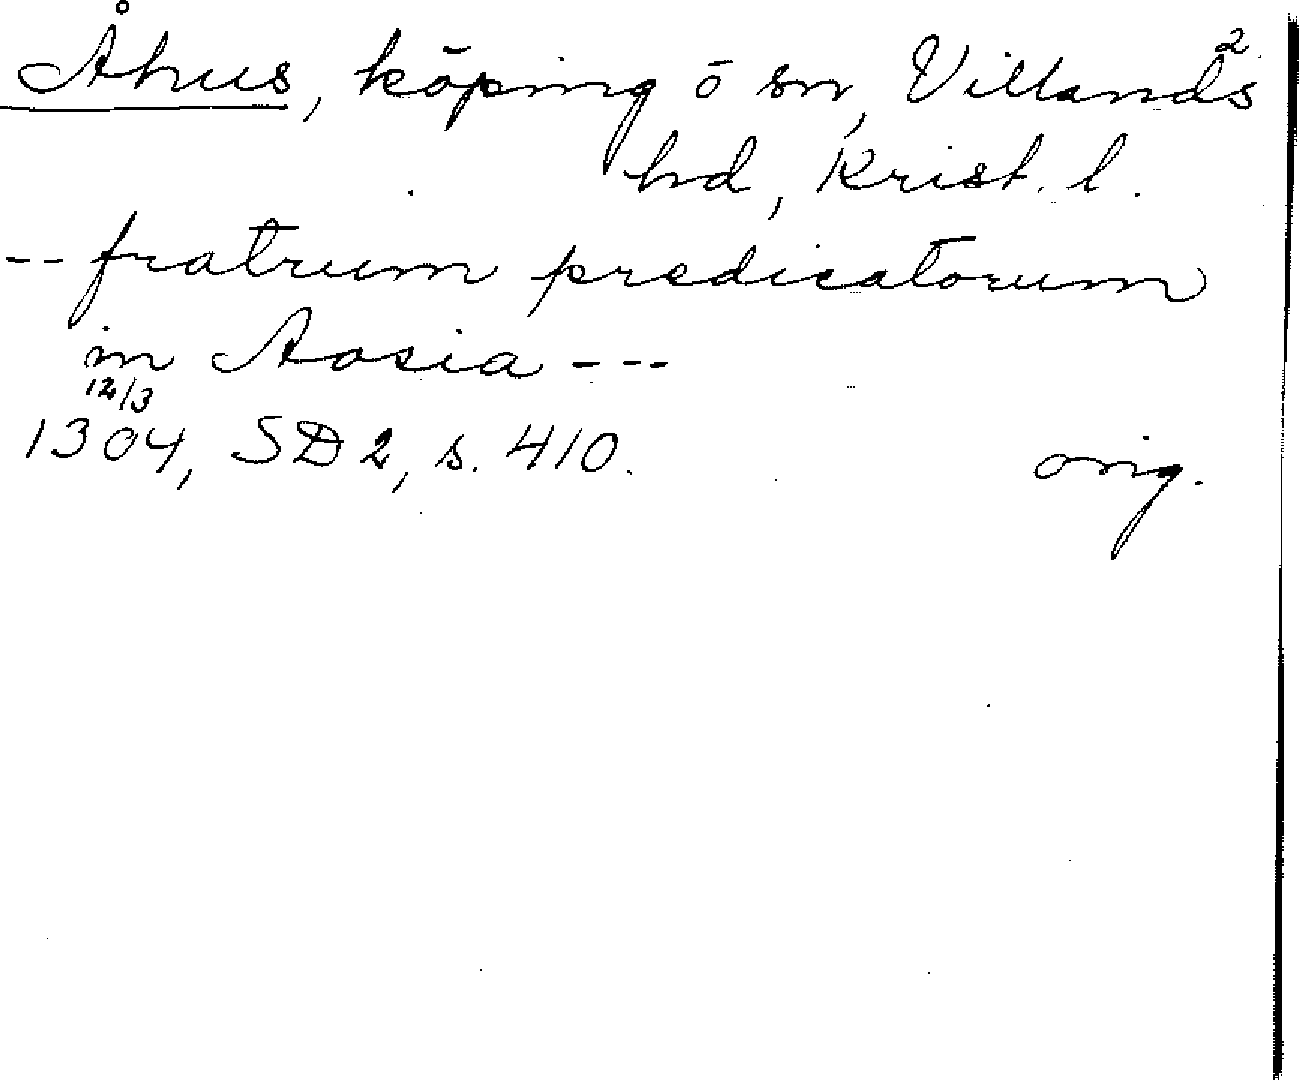 Åhus, köping ō sn, Villands 2
hd, Krist. l.
-- fratrum predicatorum
in Aosia ---
12/3
1304, SD 2, s. 410. orig.